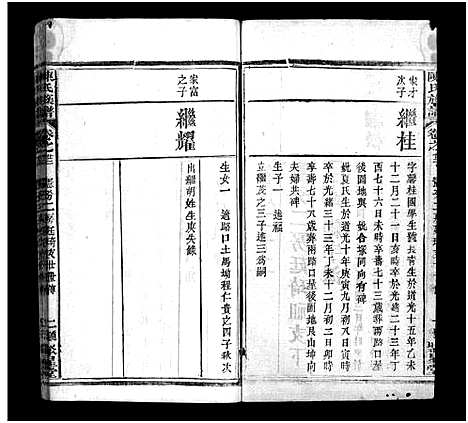 陳氏族譜
卷之
家才
次子
繼桂
字馨桂國學生長曾生於道光十五年乙未
十二月二十一日未時卒於光緒二十三年丁
酉七十六日未時卒壽七十三歲葬
後園地與曾氏合塚同向有碑
氏生於道光十年庚寅九月初八日寅時
卒於光緒三十三年丁未十二月初二日卯時
卒壽七十八歲葬兩路口屋後園地艮山坤向
夫婦共碑
生子一 進福
立繼茂之三子述三為嗣
生女一 適路口土馬坳程仁貴之四子秋次
家富
之子
繼耀
出繼胡姓生庚失錄
陳氏族譜
卷之